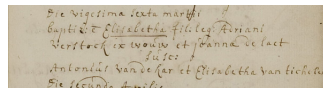 Die vigesima sexta martii
baptizit Elisabetha fil. leg. Adriani
verstock ex wouw et Joanna de laet
susc:
Antonius van de kar et Elisabetha van tichele
Die secunda Aprilis